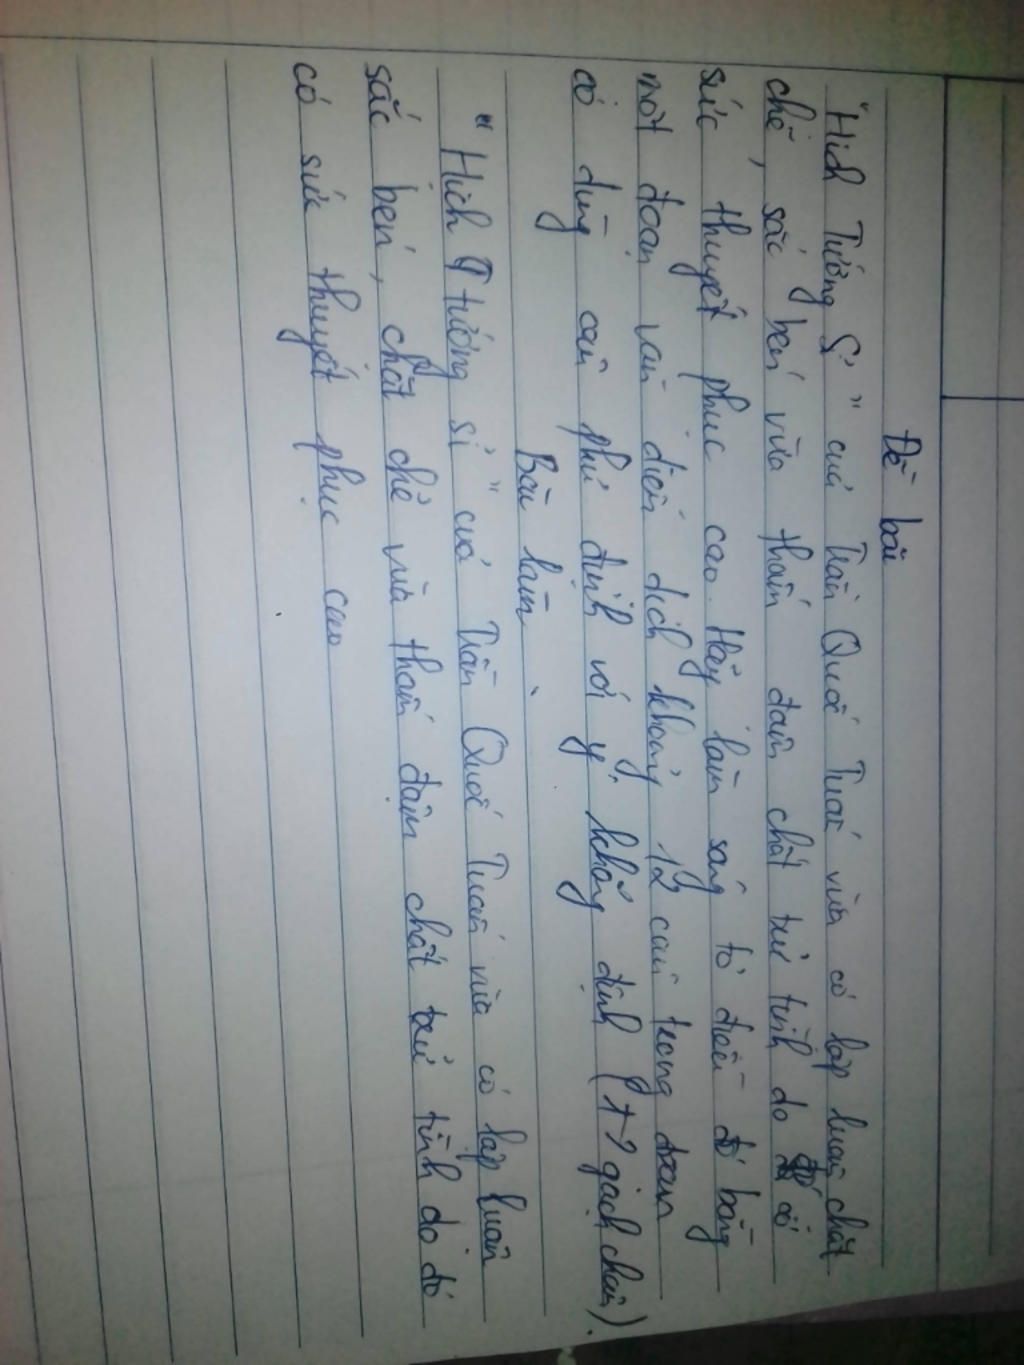 Đề bài
"Hịch Tướng Sĩ" của Trần Quốc Tuấn vừa có lập luận chặt
chẽ, sắc bén vừa thấm đẫm chất trữ tình do đó có
sức thuyết phục cao. Hãy làm sáng tỏ điều đó bằng
một đoạn văn diễn dịch khoảng 12 câu trong đoạn
có dùng câu phủ định với ý khẳng định (+> gạch chân).
Bài làm
"Hịch tướng sĩ" của Trần Quốc Tuấn vừa có lập luận
sắc bén, chặt chẽ vừa thấm đậm chất trữ tình do đó
có sức thuyết phục cao